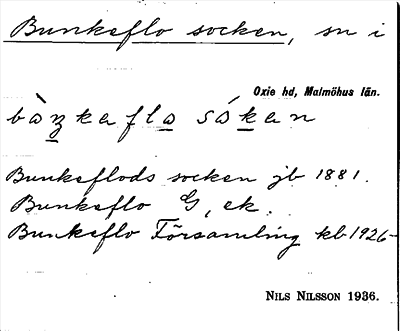 Bunkeflo socken, sn i
Oxie hd, Malmöhus län.
bàŋkefla sókan
Bunkeflods socken jb 1881.
Bunkeflo G, ek.
Bunkeflo Församling kb 1926-
NILS NILSSON 1936.